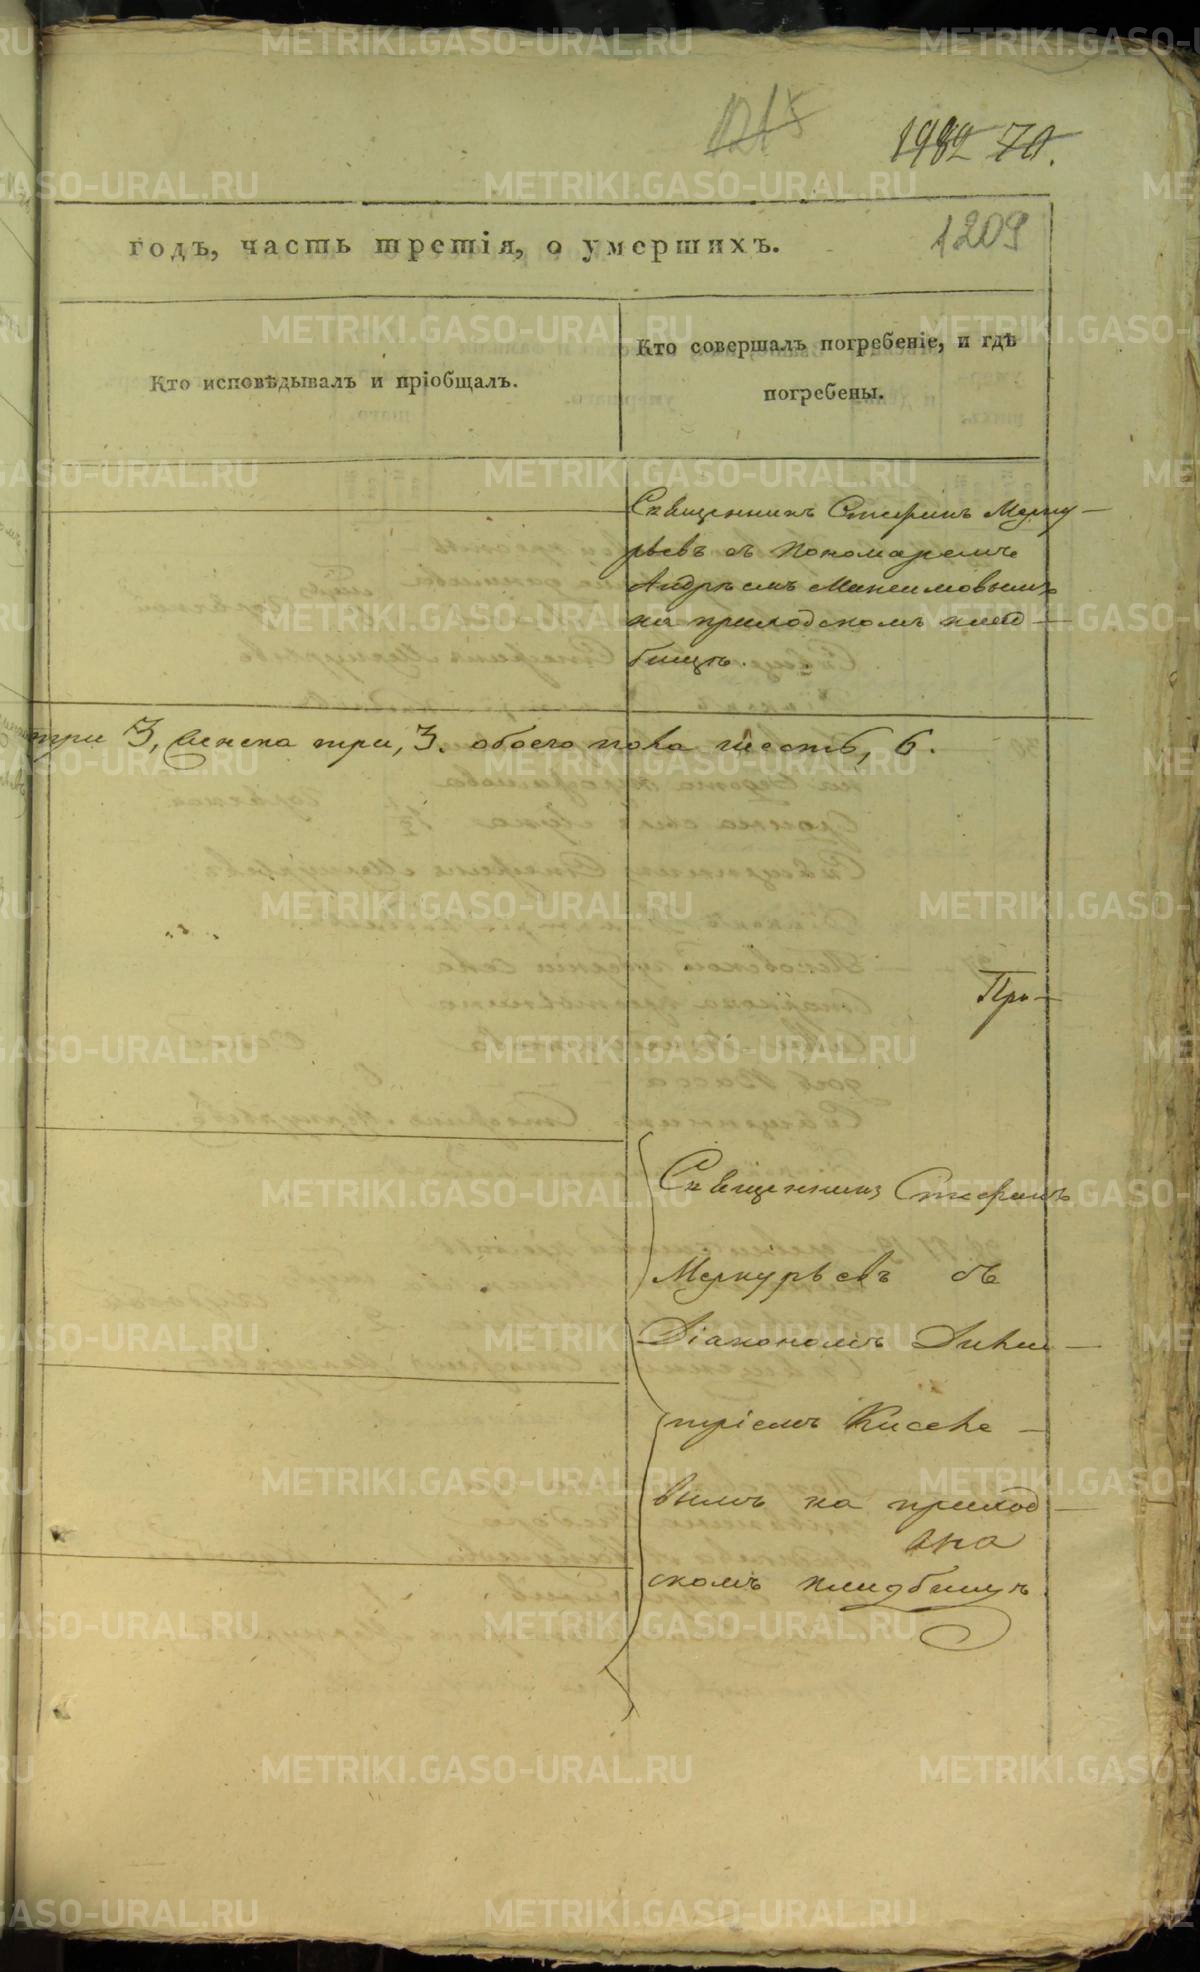 1215
1982 70.
1209
годъ, часть третія, о умершихъ.
Кто исповѣдывалъ и пріобщалъ.
Кто совершалъ погребеніе, и гдѣ
погребены.
Священникъ Стефанъ Мерку-
рьевъ съ пономаремъ
Андрѣемъ Максимовымъ
на приходскомъ клад-
бищѣ.
три 3, женска три, 3. обоего пола шесть, 6.
При-
Священникъ Стефанъ
Меркурьевъ съ
Діакономъ Дими-
тріемъ Киселе-
вымъ на приход-
скомъ кладбищѣ.
METRIKI.GASO-URAL.RU